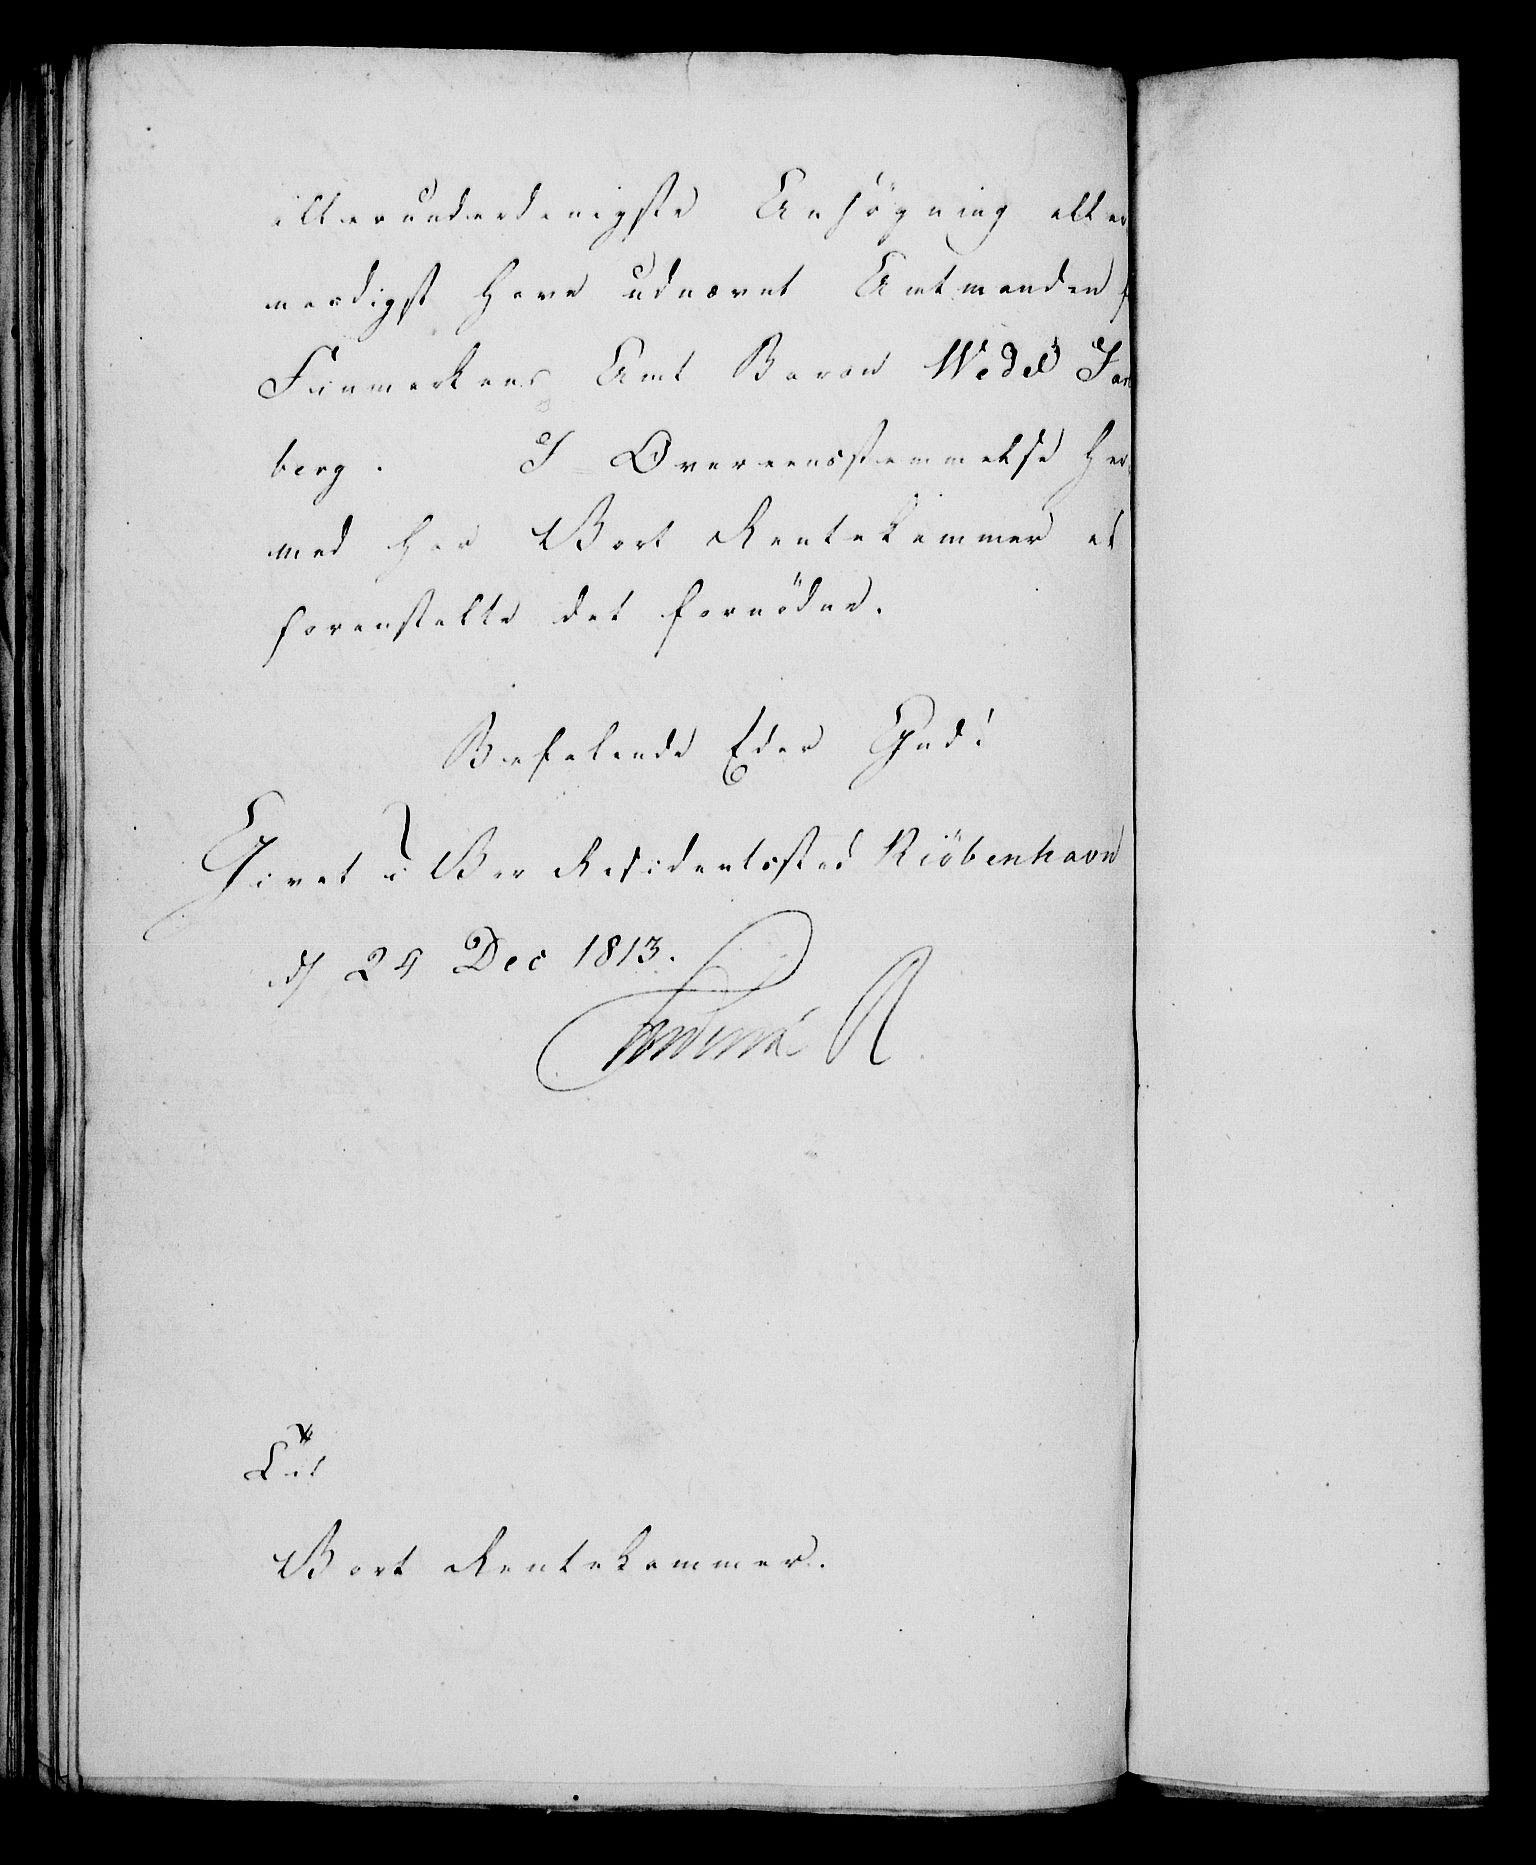 allerunderdanigste Ansögning aller
naadigst have udnævnt Amtmanden
Finmarkens Amt Baron Wedel Jarl
berg. I Overeensstemmelse her
med har Vort Rentekammer at
foranstalte det fornödne.
Befalende Eder Gud!
Givet i Vor Residentsstad Kiöbenhavn
d 24 Dec 1813.
Frederik R
Til
Vort Rentekammer.